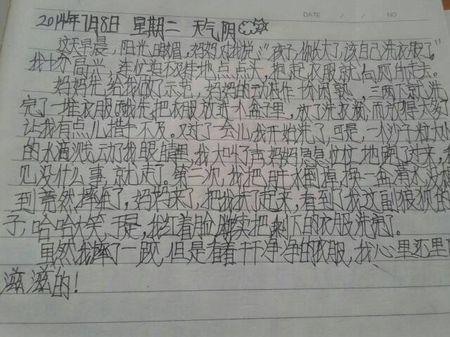 DATE / / NO
2014年7月8日 星期二 天气阴
这天早晨，阳光明媚，妈妈对我说："孩子，你长大了该自己洗衣服了。"
我十分高兴，连忙迫不及待地点点头，起衣服就
妈妈先给我做了示范，妈妈的动作 三两下就洗
完了一堆衣服 先把衣服放在水盆里，放了洗衣 放得太多
让我有点儿措手不及。过了会儿我开始洗了，可是，一 大
的水滴溅 了我眼睛里，我大叫了声妈妈 急忙 地跑了过来，看
见没什么事，就走了。第二次，我把脏水倒掉，换一盆清水，没想
到竟然摔倒了，妈妈来了，把我扶了起来，看到了我这副狼狈的样
子，哈哈大笑，于是，我红着脸继续把剩下的衣服洗完了。
虽然我摔了一跤，但是看着干净净的衣服，我心里还是
滋滋的！